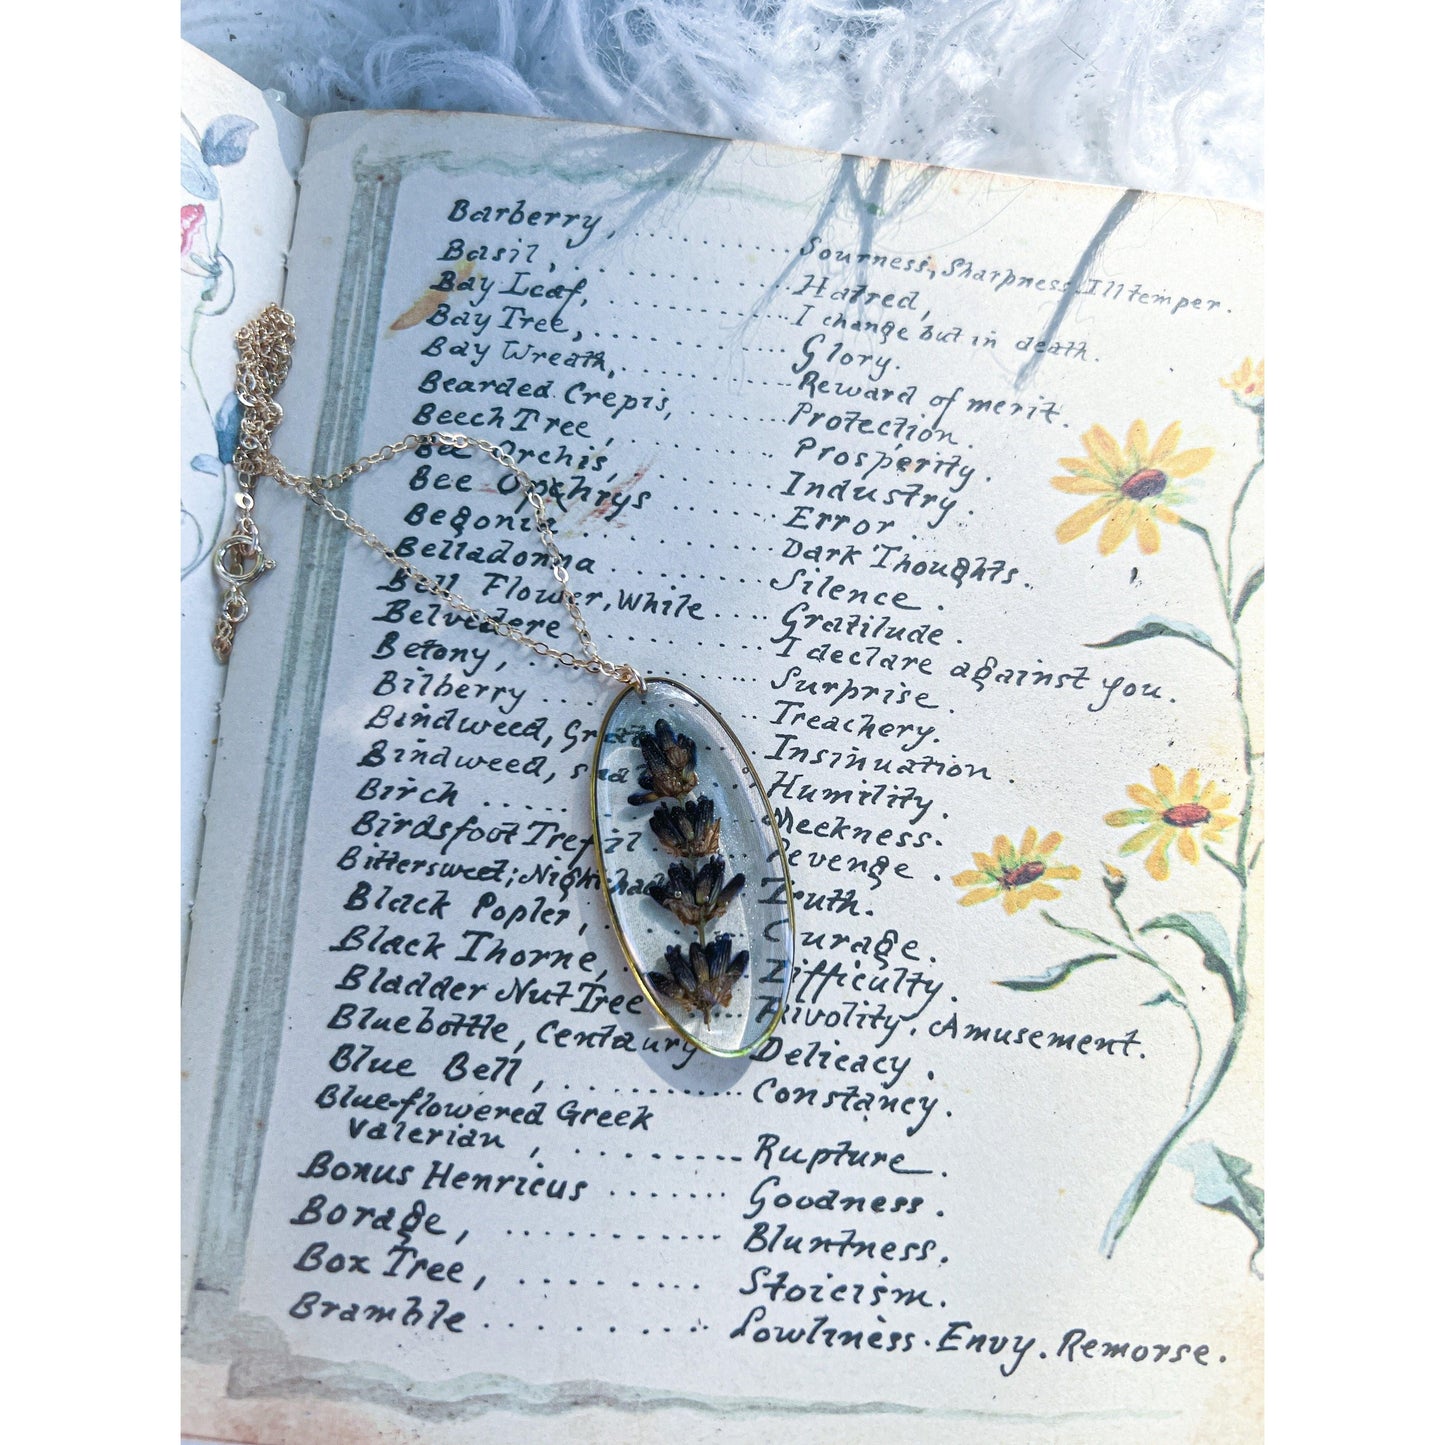 Barberry, .......... Sourness, Sharpness. Ill temper.
Basil, .......... Hatred,
Bay Leaf, .......... I change but in death.
Bay Tree, .......... Glory.
Bay Wreath, .......... Reward of merit.
Bearded Crepis, ....... Protection.
Beech Tree, .......... Prosperity.
Bee Orchis, .......... Industry.
Bee Ophrys ....... Error.
Begonia .......... Dark Thoughts.
Belladonna ........ Silence.
Bell Flower, While .... Gratilude.
Belvedere .......... I declare against you.
Betony, .......... Surprise.
Bilberry .......... Treachery.
Bindweed, .... Insinuation.
Bindweed, .... Humility.
Birch .......... Meekness.
Birdsfoot Trefoil .... Revenge.
Bittersweet; Nightshade .... Truth.
Black Popler, .......... Courage.
Black Thorne, .......... Difficulty.
Bladder Nut Tree .... Frivolity. Amusement.
Bluebottle, Centaury Delicacy.
Blue Bell, .......... Constancy.
Blue-flowered Greek
Valerian, .......... Rupture.
Bonus Henricus ....... Goodness.
Borage, .......... Bluntness.
Box Tree, .......... Stoicism.
Bramble .......... Lowliness. Envy. Remorse.